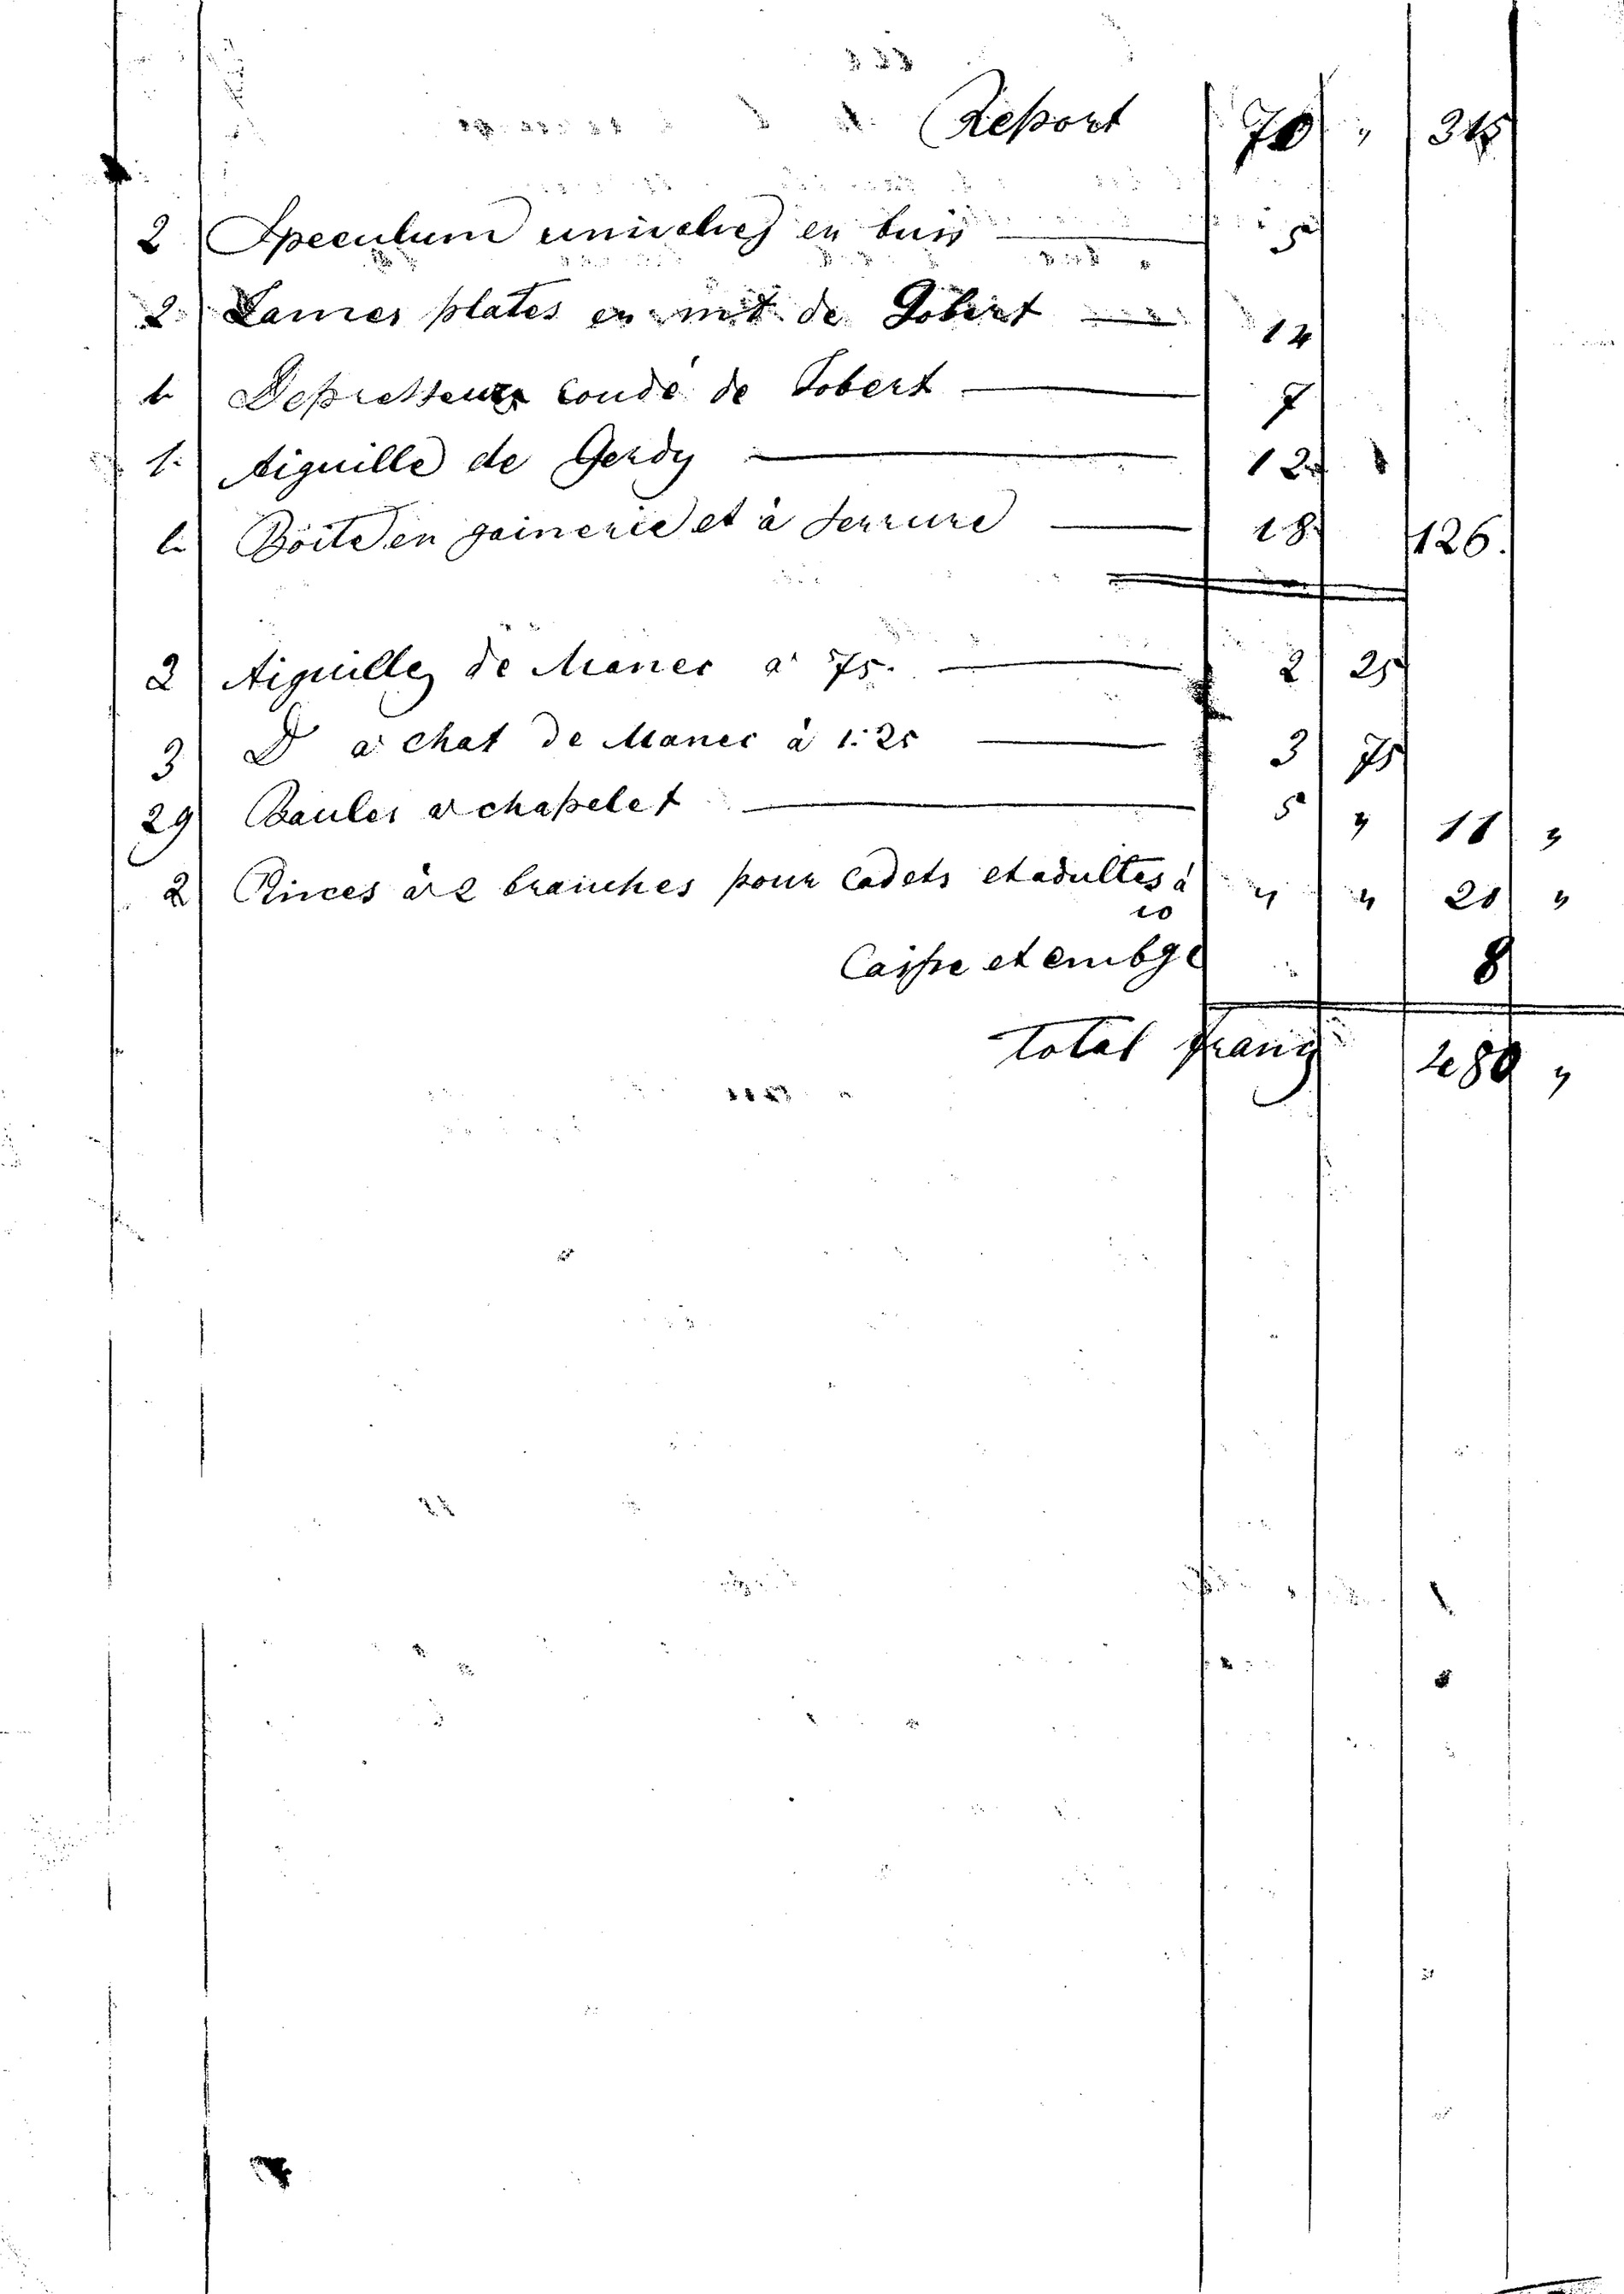 Report 70 " 315
2 Speculum univalves en buis 5
2 Lames plates en mt. de Jobert 14
1 Depresseur coudé de Jobert 7
1. Aiguille de Gerdy 12
1. Boite en gainerie et à serrure 18 126.
2 Aiguilles de Manec a 75. 2 25
3 Do a chat de Manec à 1.25 3 75
29 Boules a chapelet 5 " 11 "
2 Pinces à 2 branches pour cadets et adultes à 10 " " 20 "
Caisse et embge 8
Total francs 480 "